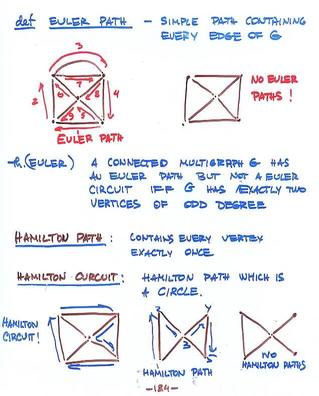 def EULER PATH - SIMPLE PATH CONTAINING
EVERY EDGE OF G
3
2
6
7
8
4
9
5
1
EULER PATH
NO EULER
PATHS!
Th. (EULER) A CONNECTED MULTIGRAPH G HAS
AN EULER PATH BUT NOT A EULER
CIRCUIT IFF G HAS EXACTLY TWO
VERTICES OF ODD DEGREE
HAMILTON PATH: CONTAINS EVERY VERTEX
EXACTLY ONCE.
HAMILTON CIRCUIT: HAMILTON PATH WHICH IS
A CIRCLE.
HAMILTON
CIRCUIT!
HAMILTON PATH
NO
HAMILTON PATHS
-184-